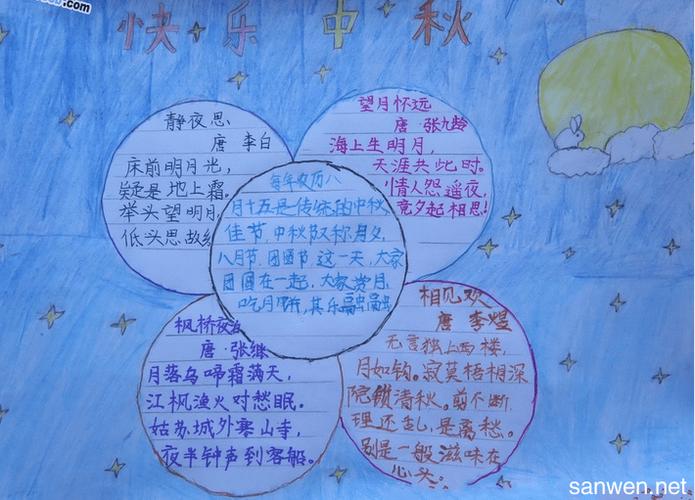 .com
快乐中秋
静夜思
唐 李白
床前明月光，
疑是地上霜。
举头望明月，
低头思故
望月怀远
唐 张九龄
海上生明月，
天涯共此时。
情人怨遥夜，
竟夕起相思！
每年农历八
月十五是传统的中秋
佳节，中秋又称月夕，
八月节，团圆节，这一天，大家
团圆在一起，大家赏月，
吃月饼，其乐融融
枫桥夜泊
唐·张继
月落乌啼霜满天，
江枫渔火对愁眠。
姑苏城外寒山寺，
夜半钟声到客船。
相见欢
唐 李煜
无言独上西楼，
月如钩。寂寞梧桐深
院锁清秋。剪不断，
理还乱，是离愁。
别是一般滋味在
心头。
sanwen.net